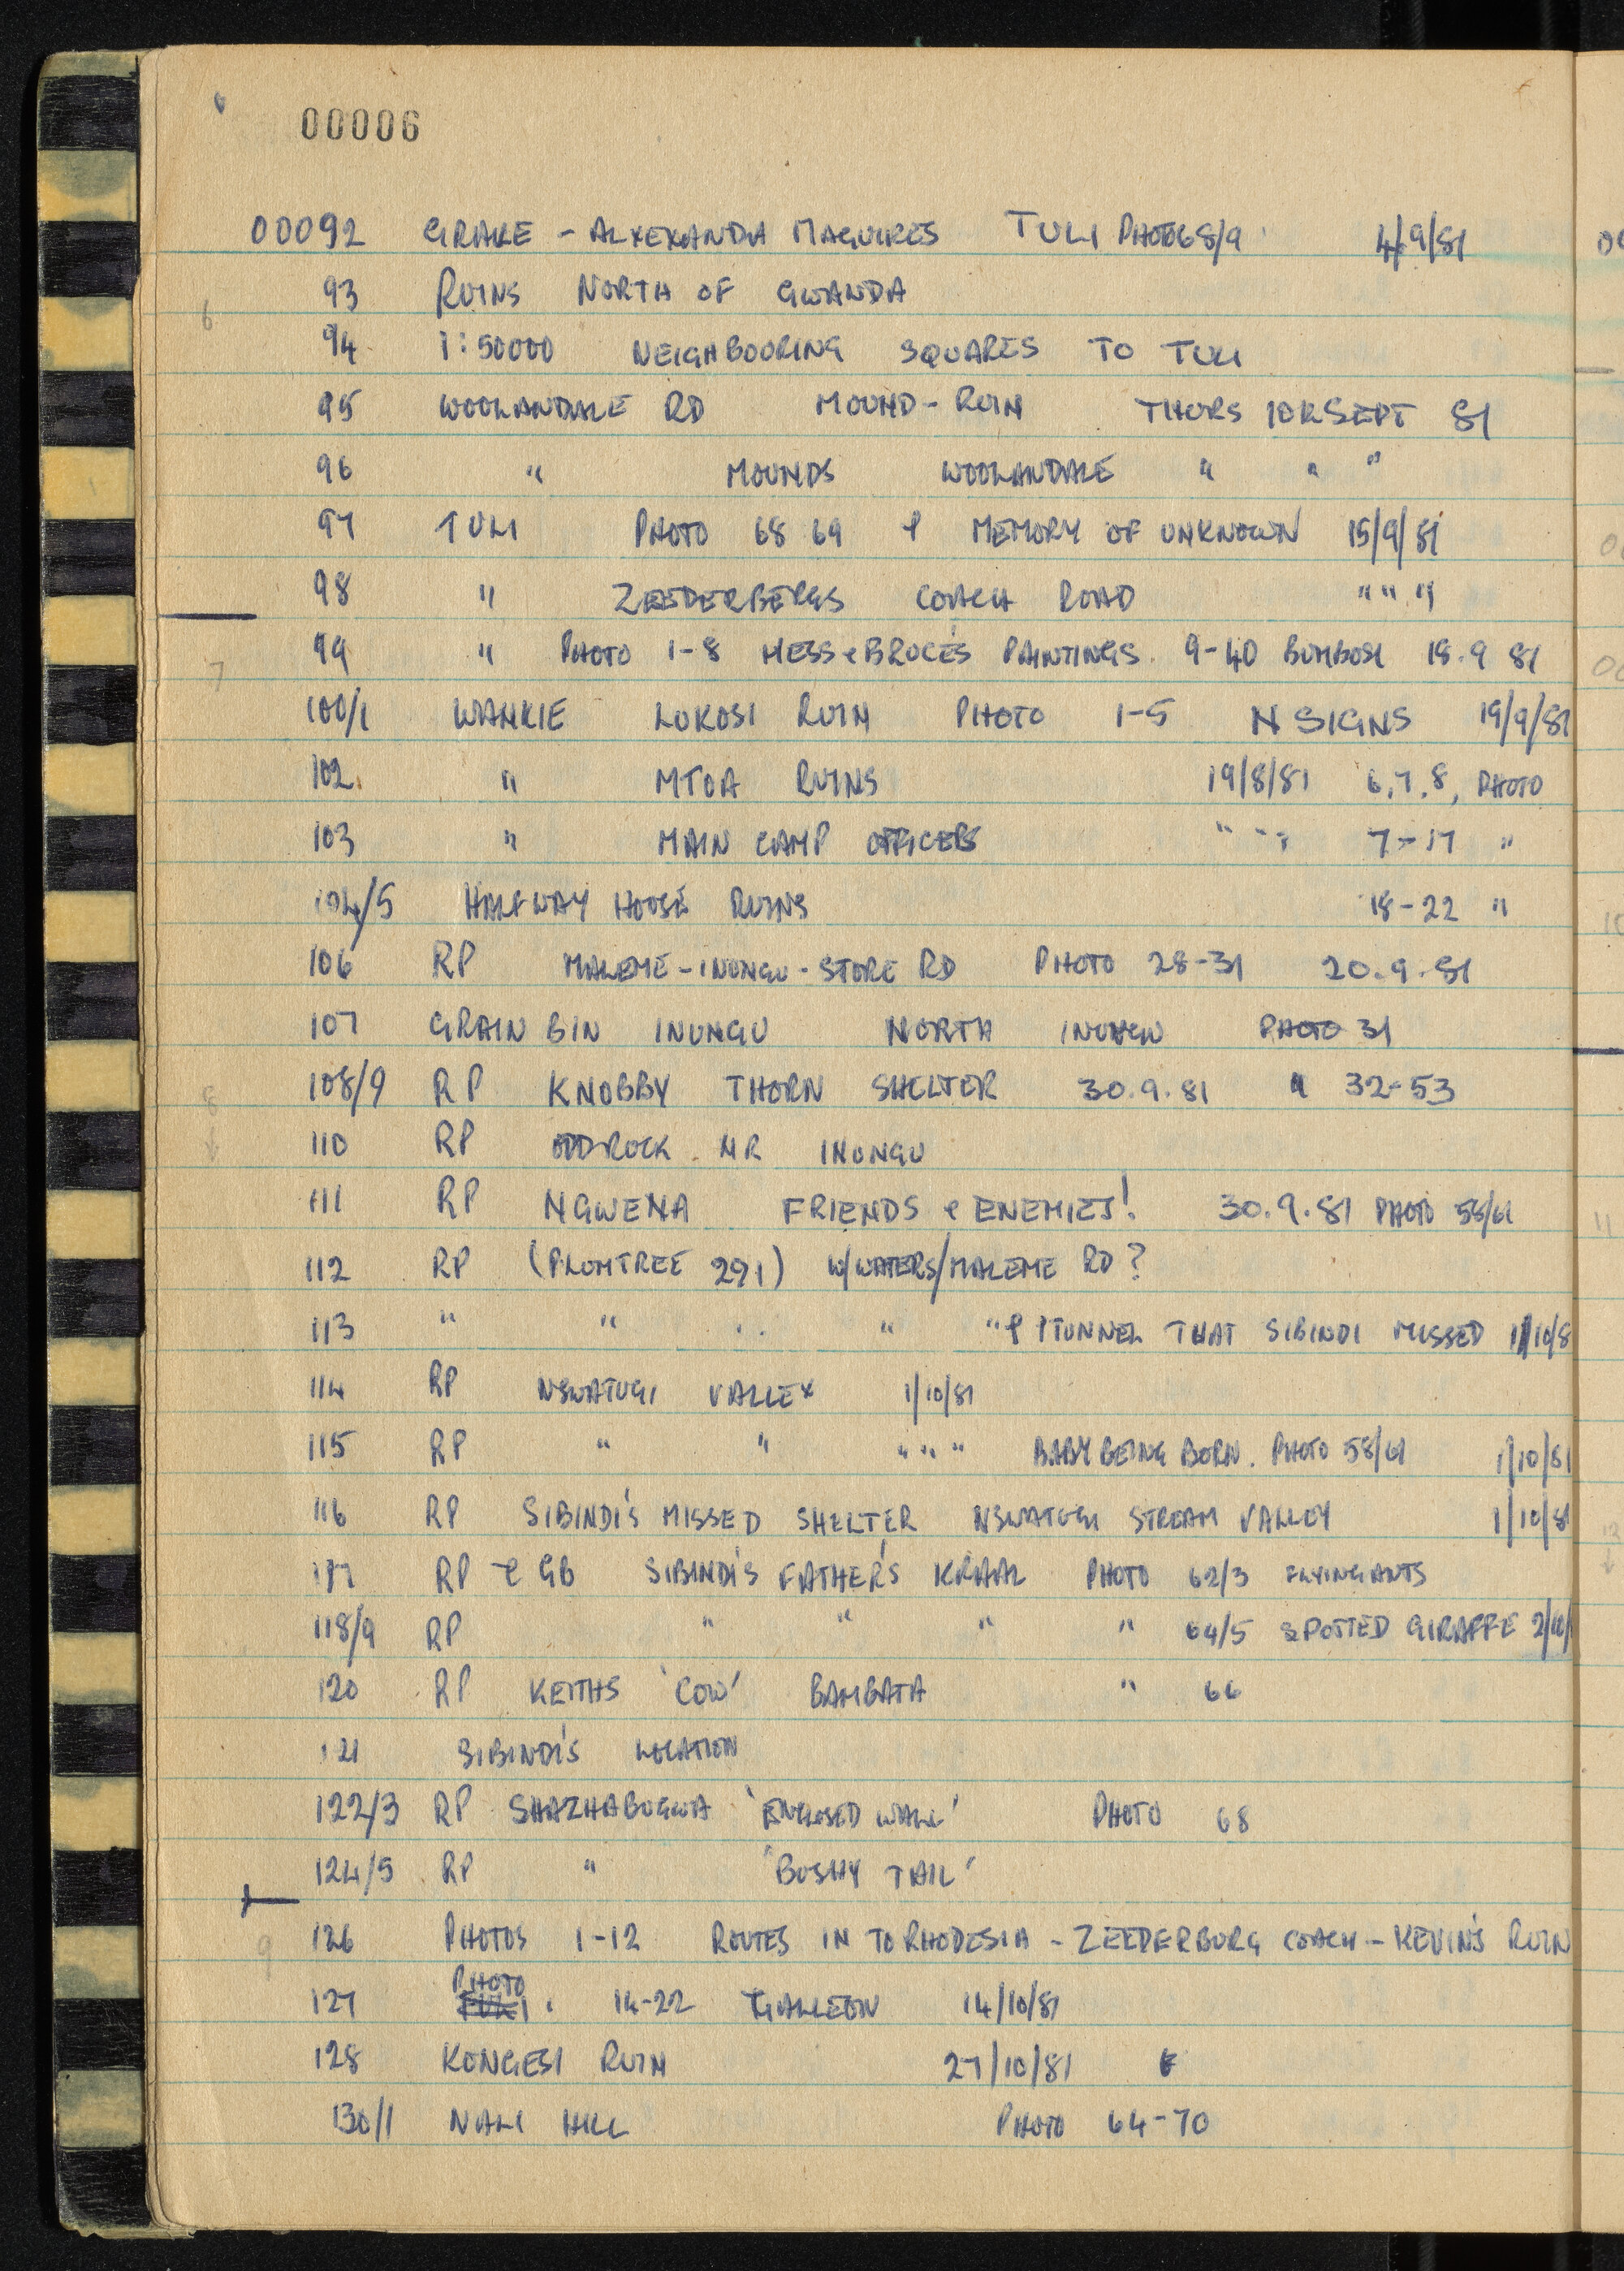 00006
00092 GRAKE - ALXEXANDA MAGUIRES TULI PHOTO 68/9 4/9/81
93 RUINS NORTH OF GWANDA
6
94 1:50000 NEIGHBOURING SQUARES TO TULI
95 WOOLANDALE RD MOUND-RUIN THURS 10 SEPT 81
96 " MOUNDS WOOLANDALE " " "
97 TULI PHOTO 68 69 & MEMORY OF UNKNOWN 15/9/81
98 " ZEEDERBERGS COACH ROAD " " "
99 " PHOTO 1-8 MESS & BRUCE'S PAINTINGS. 9-40 BUMBOSI 18.9 81
7
100/1 WANKIE LUKOSI RUIN PHOTO 1-5 N SIGNS 19/9/81
102. " MTOA RUINS 19/8/81 6,7,8, PHOTO
103 " MAIN CAMP OFFICERS " " " 7-17 "
104/5 HALFWAY HOUSE RUINS 18-22 "
106 RP MALEME-INUNGU-STORE RD PHOTO 28-31 20.9.81
107 GRAIN BIN INUNGU NORTH INUNGU PHOTO 31
108/9 RP KNOBBY THORN SHELTER 30.9.81 " 32-53
8
110 RP ODDROCK. NR INUNGU
111 RP NGWENA FRIENDS & ENEMIES! 30.9.81 PHOTO 58/61
112 RP (PLUMTREE 291) W/WATERS/MALEME RD?
113 " " " " " & TUNNEL THAT SIBINDI MISSED 1/10/8
114 RP NSWATUGI VALLEY 1/10/81
115 RP " " " " " BABY BEING BORN. PHOTO 58/61 1/10/81
116 RP SIBINDI'S MISSED SHELTER NSWATUGI STREAM VALLEY 1/10/81
117 RP & GB SIBINDI'S FATHER'S KRAAL PHOTO 62/3 FLYING ANTS
118/9 RP " " " " 64/5 SPOTTED GIRAFFE 2/10/
120 RP KEITHS 'COW' BAMBATA " 66
121 SIBINDI'S LOCATION
122/3 RP SHAZHABUGWA 'ENCLOSED WALL' PHOTO 68
124/5 RP " 'BUSHY TAIL'
126 PHOTOS 1-12 ROUTES IN TO RHODESIA - ZEEDERBURG COACH - KEVIN'S RUIN
9
127 PHOTO 14-22 GALLEON 14/10/81
128 KONGESI RUIN 27/10/81
130/1 NALI HILL PHOTO 64-70